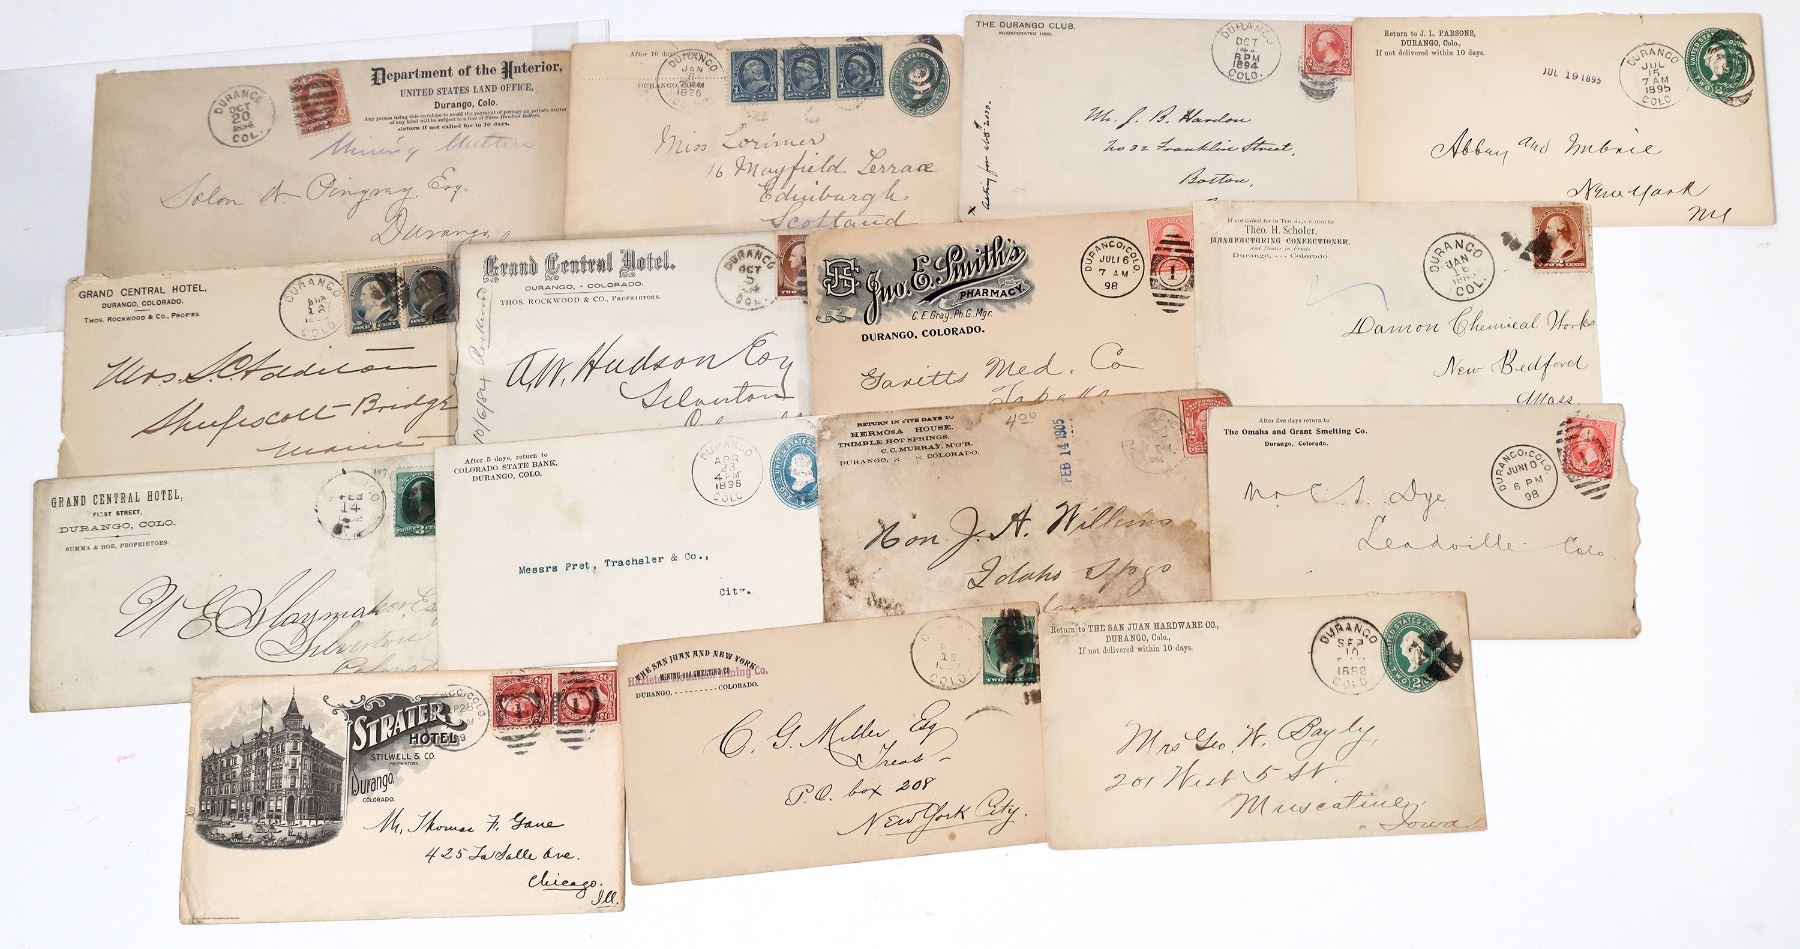 Department of the Interior,
UNITED STATES LAND OFFICE,
Durango, Colo.
Any person using this envelope to avoid the payment of postage on private matter
of any kind will be subject to a fine of Three Hundred Dollars.
Return if not called for in 10 days.
DURANGO
OCT
20
COL.
Mining Matters
Solon W. Pingrey Esq.
Durango
After 10 days, return to
DURANGO, COLO.
DURANGO
JAN
COLO
Miss Lorimer
16 Mayfield Terrace
Edinburgh
Scotland
THE DURANGO CLUB.
INCORPORATED
DURANGO
OCT
6 PM
1894
COLO.
Mr. J. B. Hardon
No 32 Franklin Street,
Boston,
Return to J. L. PARSONS,
DURANGO, Colo.,
If not delivered within 10 days.
JUL 19 1895
DURANGO
JUL
15
7 AM
1895
COLO.
Abbey and Imbrie
New York
NY
GRAND CENTRAL HOTEL,
DURANGO, COLORADO.
THOS. ROCKWOOD & CO., PROP'RS.
DURANGO
COLO
ONE CENT
Mrs. S. C. Additon
Sheepscott Bridge
Maine
Grand Central Hotel.
DURANGO, - COLORADO.
THOS. ROCKWOOD & CO., PROPRIETORS.
DURANGO
OCT
5
COL.
TWO
10/6/84 Rockwood
A.W. Hudson Esq
Silverton
Jno. E. Smith's
PHARMACY.
C. E. Gray, Ph.G. Mgr.
DURANGO, COLORADO.
DURANGO, COLO.
JUL 16
7 AM
98
1
Gavitts Med. Co
Topeka
If not called for in Ten days return to
Theo. H. Scholer,
MANUFACTURING CONFECTIONER,
And Dealer in Fruits
Durango, - - - Colorado.
DURANGO
JAN
16
COL.
TWO CENTS
Damon Chemical Works
New Bedford
Mass
GRAND CENTRAL HOTEL,
FIRST STREET,
DURANGO, COLO.
SUMMA & ROE, PROPRIETORS.
147
FEB
14
W E Slaymaker Esq
Silverton
Colorado
After 5 days, return to
COLORADO STATE BANK,
DURANGO, COLO.
DURANGO
APR
23
4 PM
1895
COLO
Messrs Pret, Trachsler & Co.,
City.
RETURN IN FIVE DAYS TO
HERMOSA HOUSE,
TRIMBLE HOT SPRINGS,
C. C. MURRAY, M'G'R.
DURANGO, COLORADO.
FEB 14 1905
Hon J. A. Willims
Idaho Spgs
After five days return to
The Omaha and Grant Smelting Co.
Durango, Colorado.
DURANGO, COLO.
JUN 10
6 PM
98
1
Dye
Leadville Colo.
STRATER
HOTEL
STILWELL & CO.
PROPRIETORS.
Durango,
COLORADO.
Mr. Thomas F. Gane
425 La Salle Ave.
Chicago.
Ill.
THE SAN JUAN AND NEW YORK
MINING and SMELTING CO
Mining Co.
DURANGO, COLORADO.
COLO.
TWO CENTS
C. G. Miller Esq
Treas
P.O. box 208
New York City.
Return to THE SAN JUAN HARDWARE CO.,
DURANGO, Colo.,
If not delivered within 10 days.
DURANGO
SEP
10
1892
COLO.
Mrs Geo. W. Bayly,
201 West 5 St.
Muscatine,
Iowa